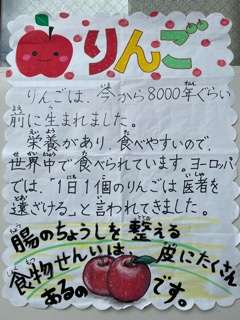 りんご
りんごは、今から8000年ぐらい
前に生まれました。
栄養があり、食べやすいので、
世界中で食べられています。ヨーロッパ
では、「1日1個のりんごは医者を
遠ざける」と言われてきました。
腸のちょうしを整える
食物せんいは、皮にたくさん
あるのです。